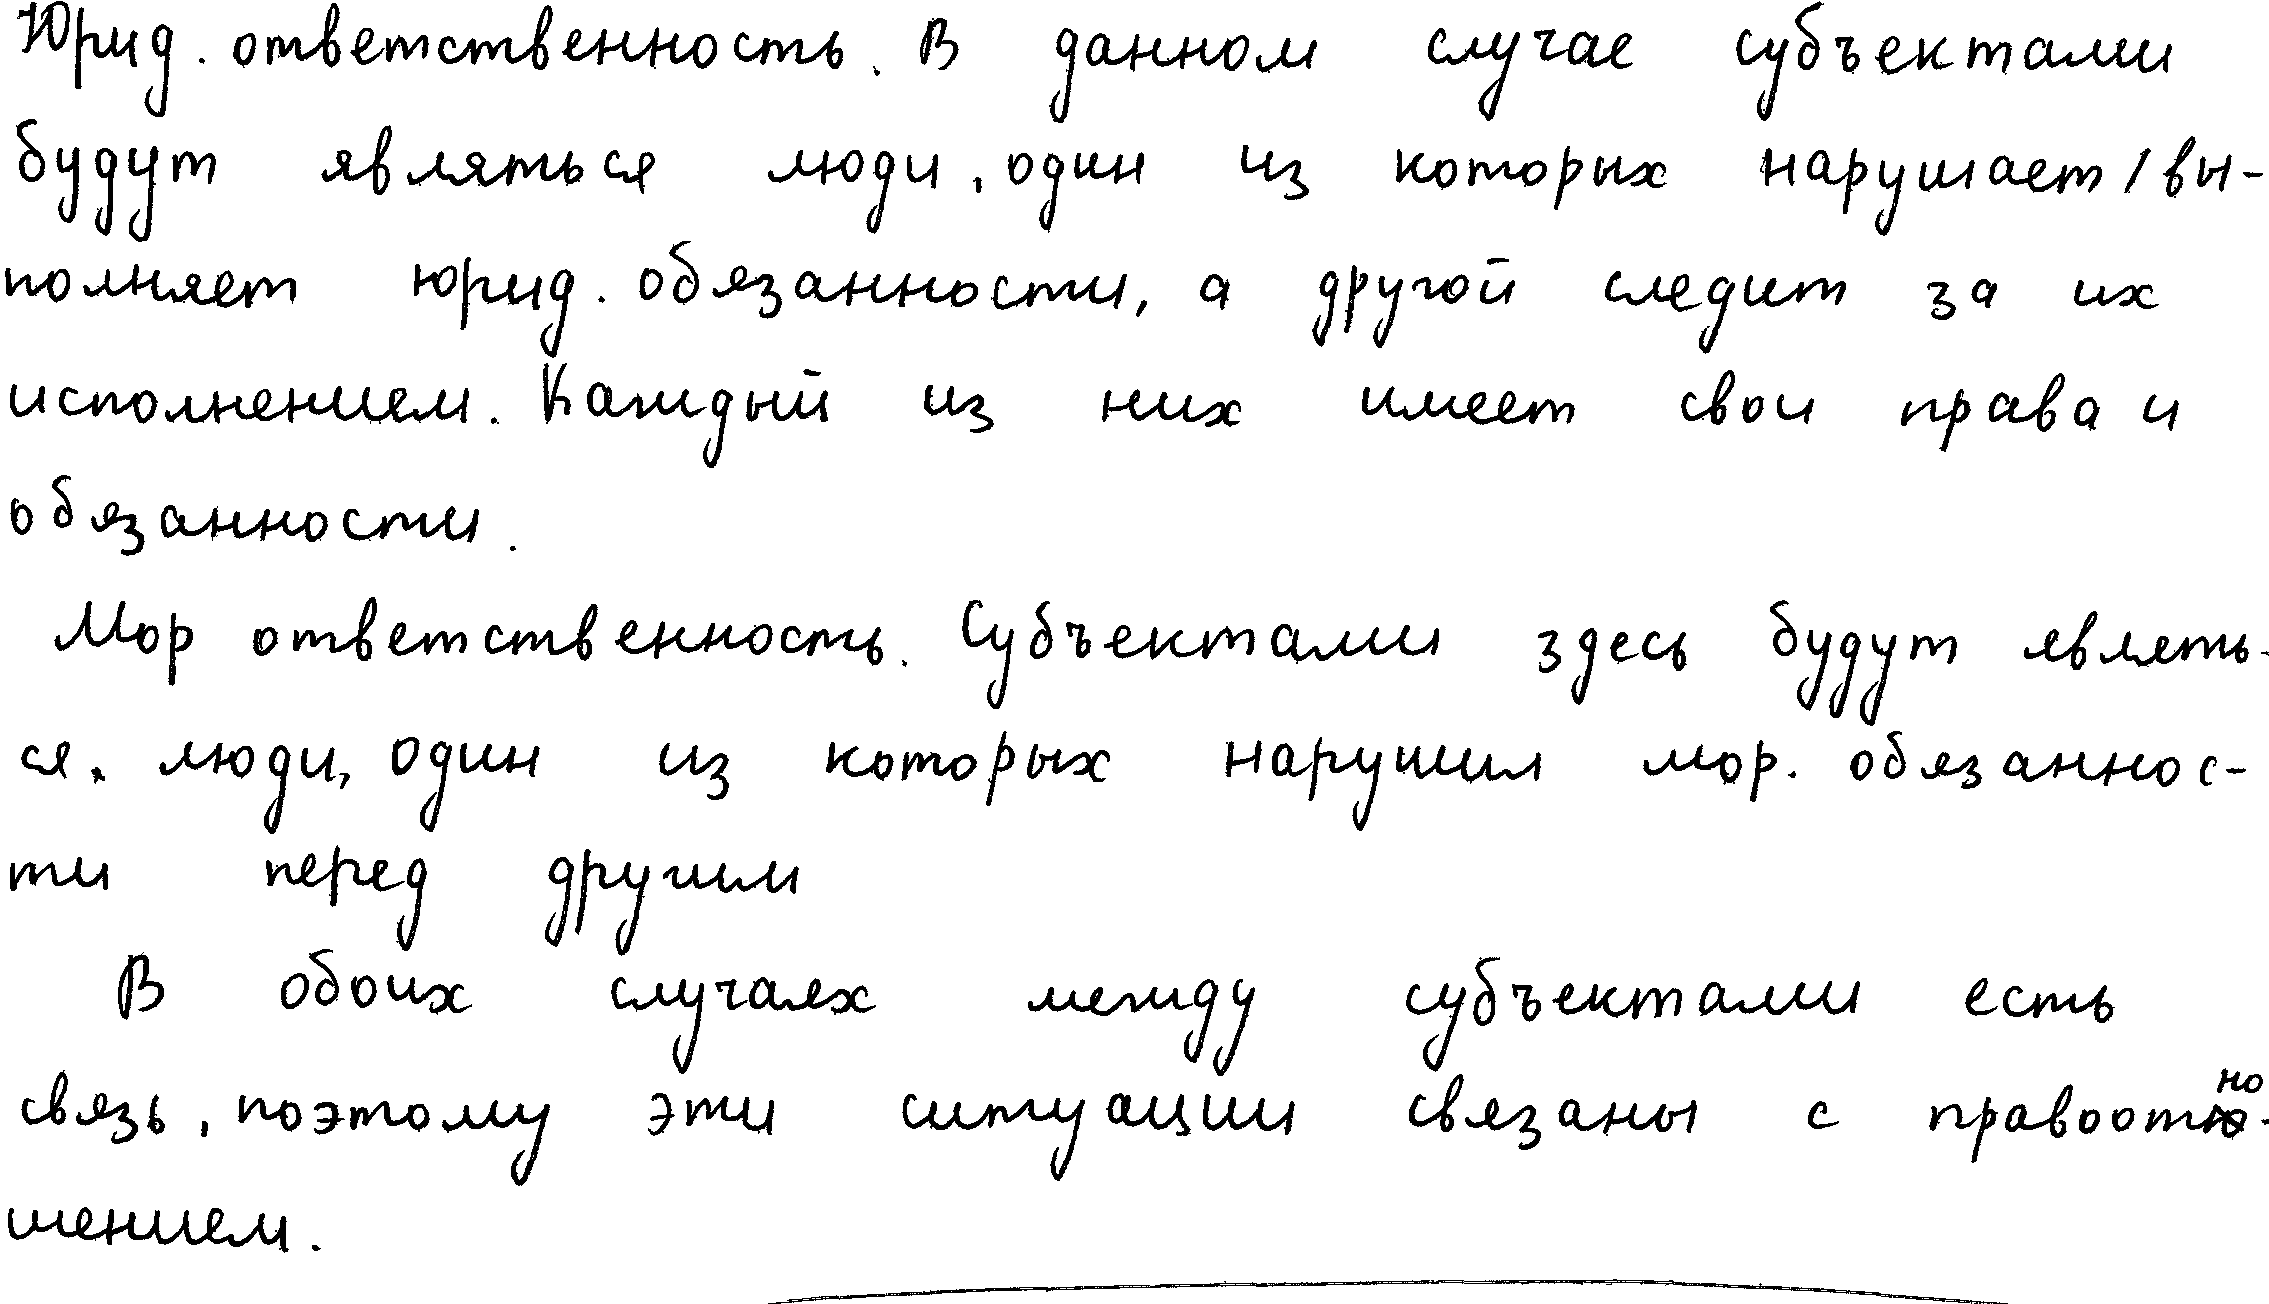 Юрид. ответственность. В данном случае субъектами
будут являться люди, один из которых нарушает/вы-
полняет юрид. обязанности, а другой следит за их
исполнением. Каждый из них имеет свои права и
обязанности.
Мор ответственность. Субъектами здесь будут являть-
ся. люди, один из которых нарушил мор. обязаннос-
ти перед другим
В обоих случаях между субъектами есть
связь, поэтому эти ситуации связаны с правоотно-
шением.